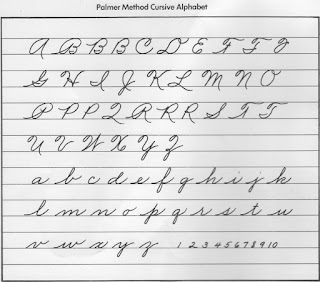 Palmer Method Cursive Alphabet
A B B B C D E F F G
G H I J K L M N O
P P P Q R R R S T T
U V W X Y Z
a b c d e f g h i j k
l m n o p q r s t u
v w x y z 1 2 3 4 5 6 7 8 9 10